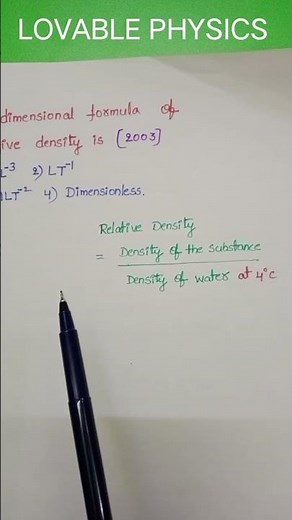 LOVABLE PHYSICS
dimensional formula of
ive density is [2003]
L⁻³ 2) LT⁻¹
MLT⁻² 4) Dimensionless.
Relative Density
= Density of the substance
Density of water at 4°C